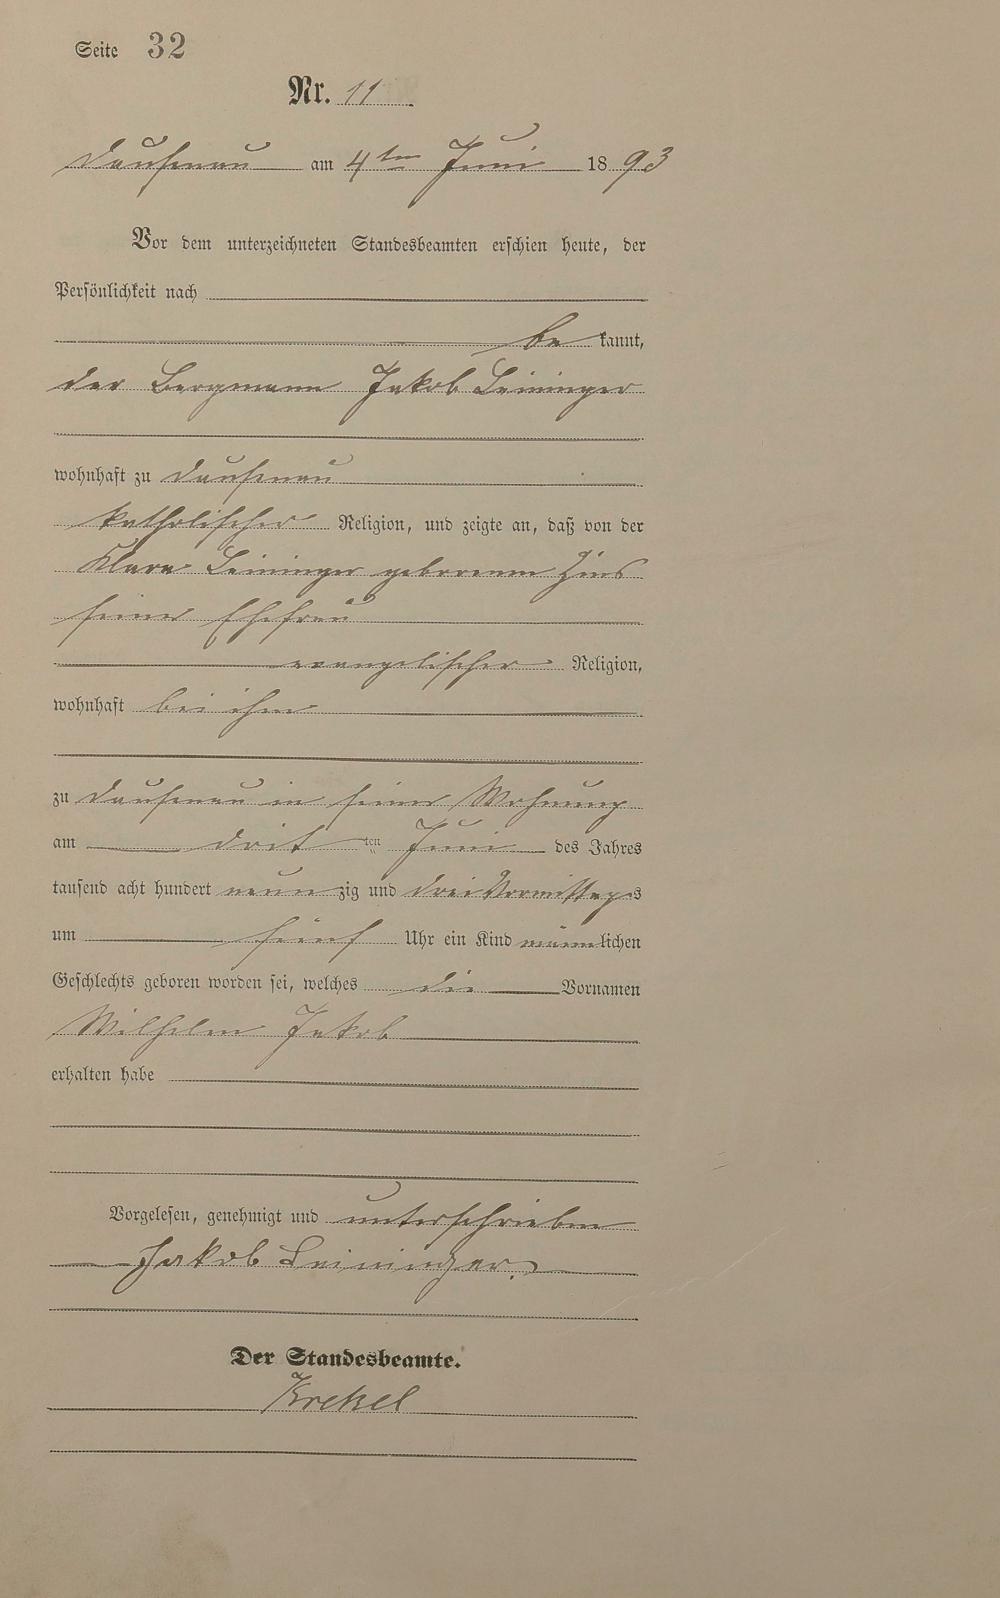 Seite 32
Nr. 11
Dausenau am 4ten Juni 1893
Vor dem unterzeichneten Standesbeamten erschien heute, der
Persönlichkeit nach
be kannt,
der Bergmann Jakob Leininger
wohnhaft zu Dausenau
katholischer Religion, und zeigte an, daß von der
Klara Leininger geborenen Zins
seiner Ehefrau
evangelischer Religion,
wohnhaft bei ihm
zu Dausenau in seiner Wohnung
am dritten Juni des Jahres
tausend acht hundert neunzig und drei Vormittags
um fünf Uhr ein Kind männlichen
Geschlechts geboren worden sei, welches die Vornamen
Wilhelm Jakob
erhalten habe
Vorgelesen, genehmigt und unterschrieben
Jakob Leininger.
Der Standesbeamte.
Krekel